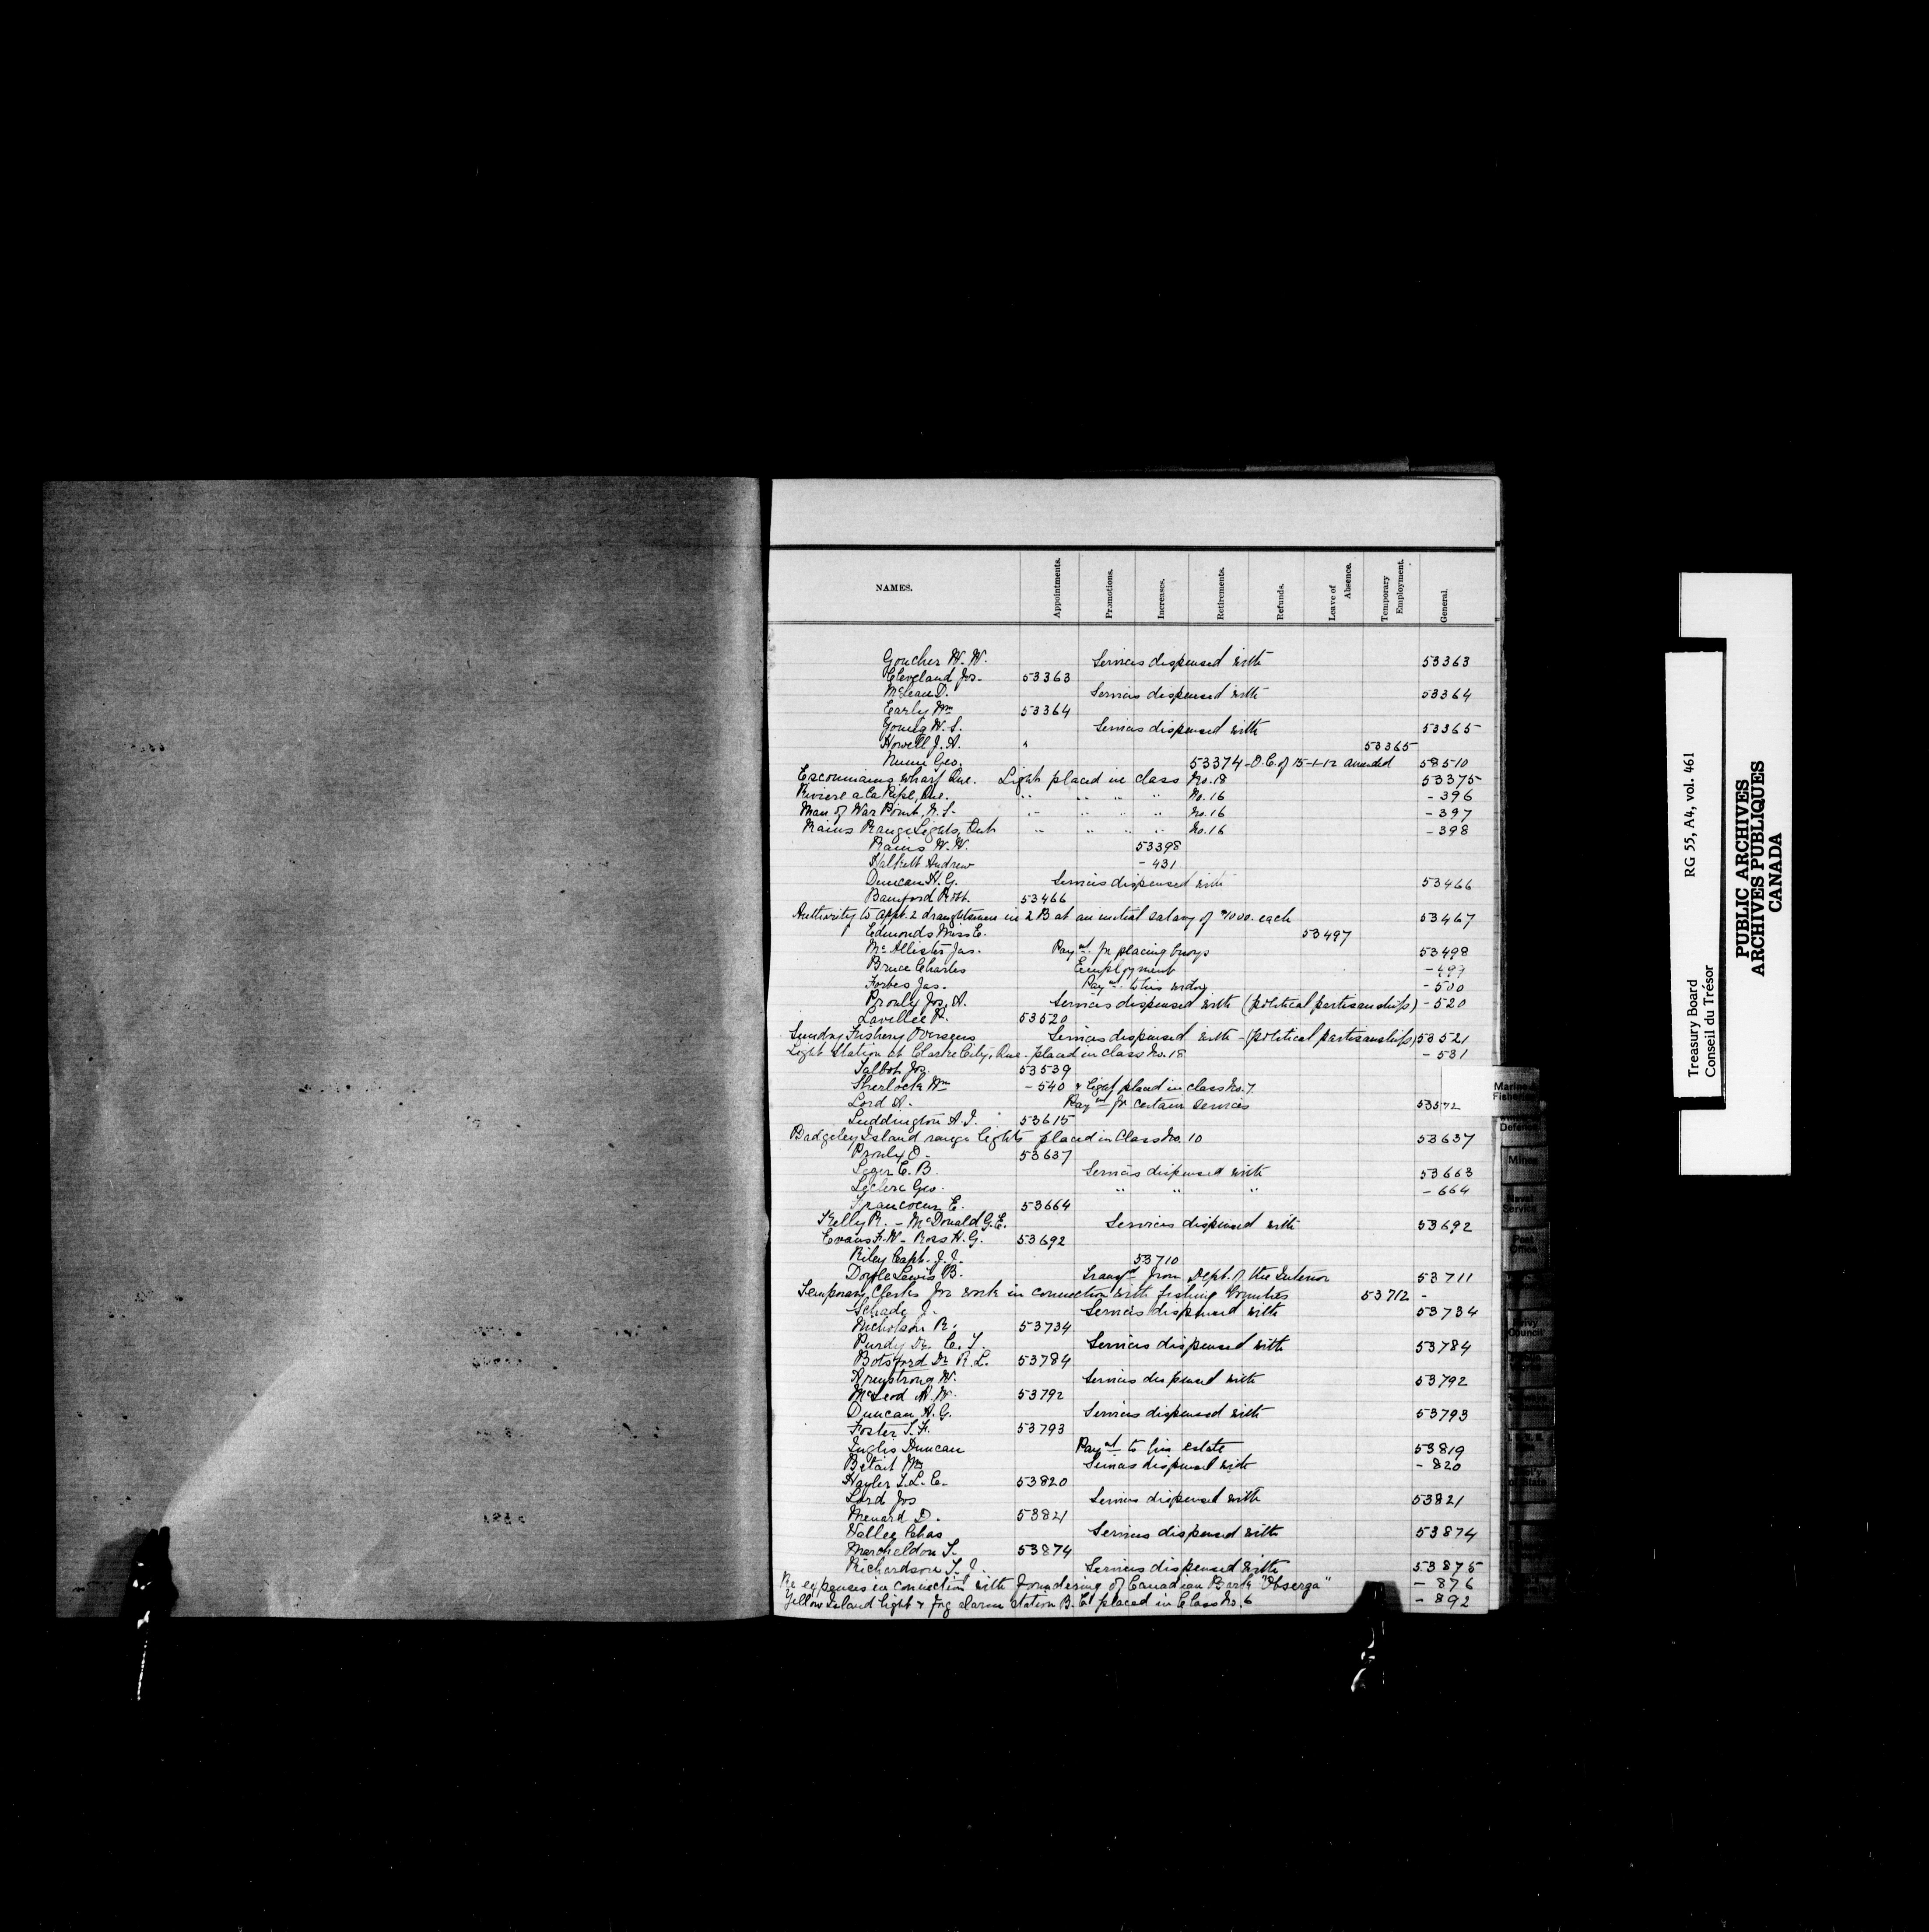 NAMES. Appointments. Promotions. Increases. Retirements. Refunds. Leave of Absence. Temporary Employment. General.
Goucher W. W. Services dispensed with 53363
Cleveland Jos. 53363
McLean D. Services dispensed with 53364
Early Wm 53364
Young W. S. Services dispensed with 53365
Howell J. A. " 53365
Geo. 53374 - O.C. of 15-1-12 amended 53510
Escoumains wharf Que. Light placed in class No. 18 53375
Riviere a la Pipe, Que. " " " " No. 16 - 396
Man of War Point, N.S. " " " " No. 16 - 397
Rains Range Lights, Ont " " " " No. 16 - 398
Rains W. W. 53398
Halkett Andrew - 431
Duncan A. G. Services dispensed with 53466
Bamford Robt. 53466
Authority to appt. 2 draughtsmen in 2 B at an initial salary of $1000. each 53467
Edmonds Miss E. 53497
McAllister Jas. Paymt. for placing buoys 53498
Bruce Charles Employment - 499
Forbes Jas. Paymt. to his wdw - 500
Proulx Jos. A. Services dispensed with (political partisanship) - 520
Lavellee P. 53520
Sundry Fishery Overseers Services dispensed with - (political partisanship) 53521
Light Station at Clarke City, Que. placed in class No. 18 - 531
Talbot Jos. 53539
Sherlock Wm - 540 & light placed in class No. 7
Lord A. Paymt for certain services 53572
Luddington A. J. 53615
Badgeley Island range lights placed in Class No. 10 53637
Proulx O. 53637
Leger E. B. Services dispensed with 53663
Leclerc Geo. " " " - 664
Francoeur E. 53664
Kelly R. - McDonald G. E. Services dispensed with 53692
Evans F. W. - Ross H. G. 53692
Riley Capt. J. J. 53710
Doyle Lewis B. Transfd from Dept. of the Interior 53711
Temporary Clerks for work in connection with fishing bounties 53712 -
Schade J. Services dispensed with 53734
Nicholson R. 53734
Purdy Dr. C. T. Services dispensed with 53784
Botsford Dr R. L. 53784
Armstrong W. Services dispensed with 53792
McLeod A. W. 53792
Duncan A. G. Services dispensed with 53793
Foster S. F. 53793
Inglis Duncan Paymt to his estate 53819
Wm Services dispensed with - 820
Hayler T. L. E. 53820
Lord Jos Services dispensed with 53821
Menard D. 53821
Vallee Chas Services dispensed with 53874
Marcheldon T. 53874
Richardson T. J. Services dispensed with 53875
Re expenses in connection with foundering of Canadian Bark "Obserga" - 876
Yellow Island light & fog alarm station B.C. placed in Class No. 6 - 892
Marine & Fisheries
Defence
Mines
Naval Service
Post Office
Privy Council
Treasury Board RG 55, A4, vol. 461
Conseil du Trésor
PUBLIC ARCHIVES
ARCHIVES PUBLIQUES
CANADA